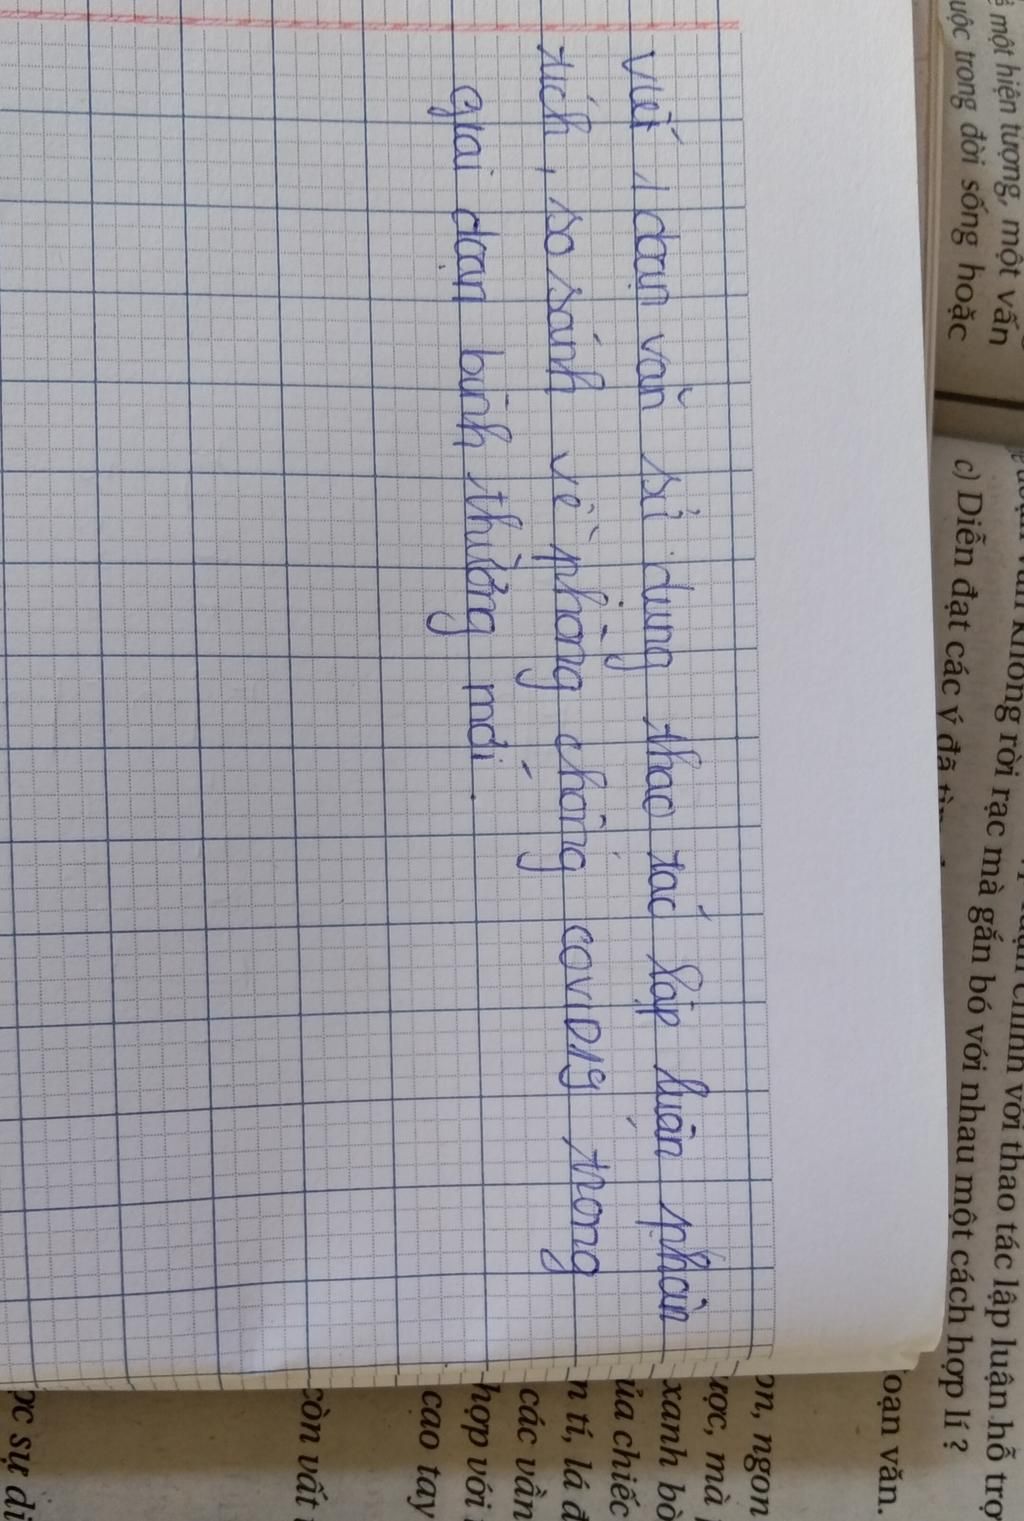 ả một hiện tượng, một vấn
uộc trong đời sống hoặc
không rời rạc mà gắn bó với nhau một cách hợp lí ?
c) Diễn đạt các ý đã
chính với thao tác lập luận hỗ trợ
oạn văn.
viết 1 đoạn văn sử dụng thao tác lập luận phân
tích, so sánh về phòng chống COVID19 trong
giai đoạn bình thường mới.
on, ngon
ược, mà
xanh bò
ủa chiếc
n tí, lá đ
các vần
hợp với
cao tay
còn vất
ọc sự di